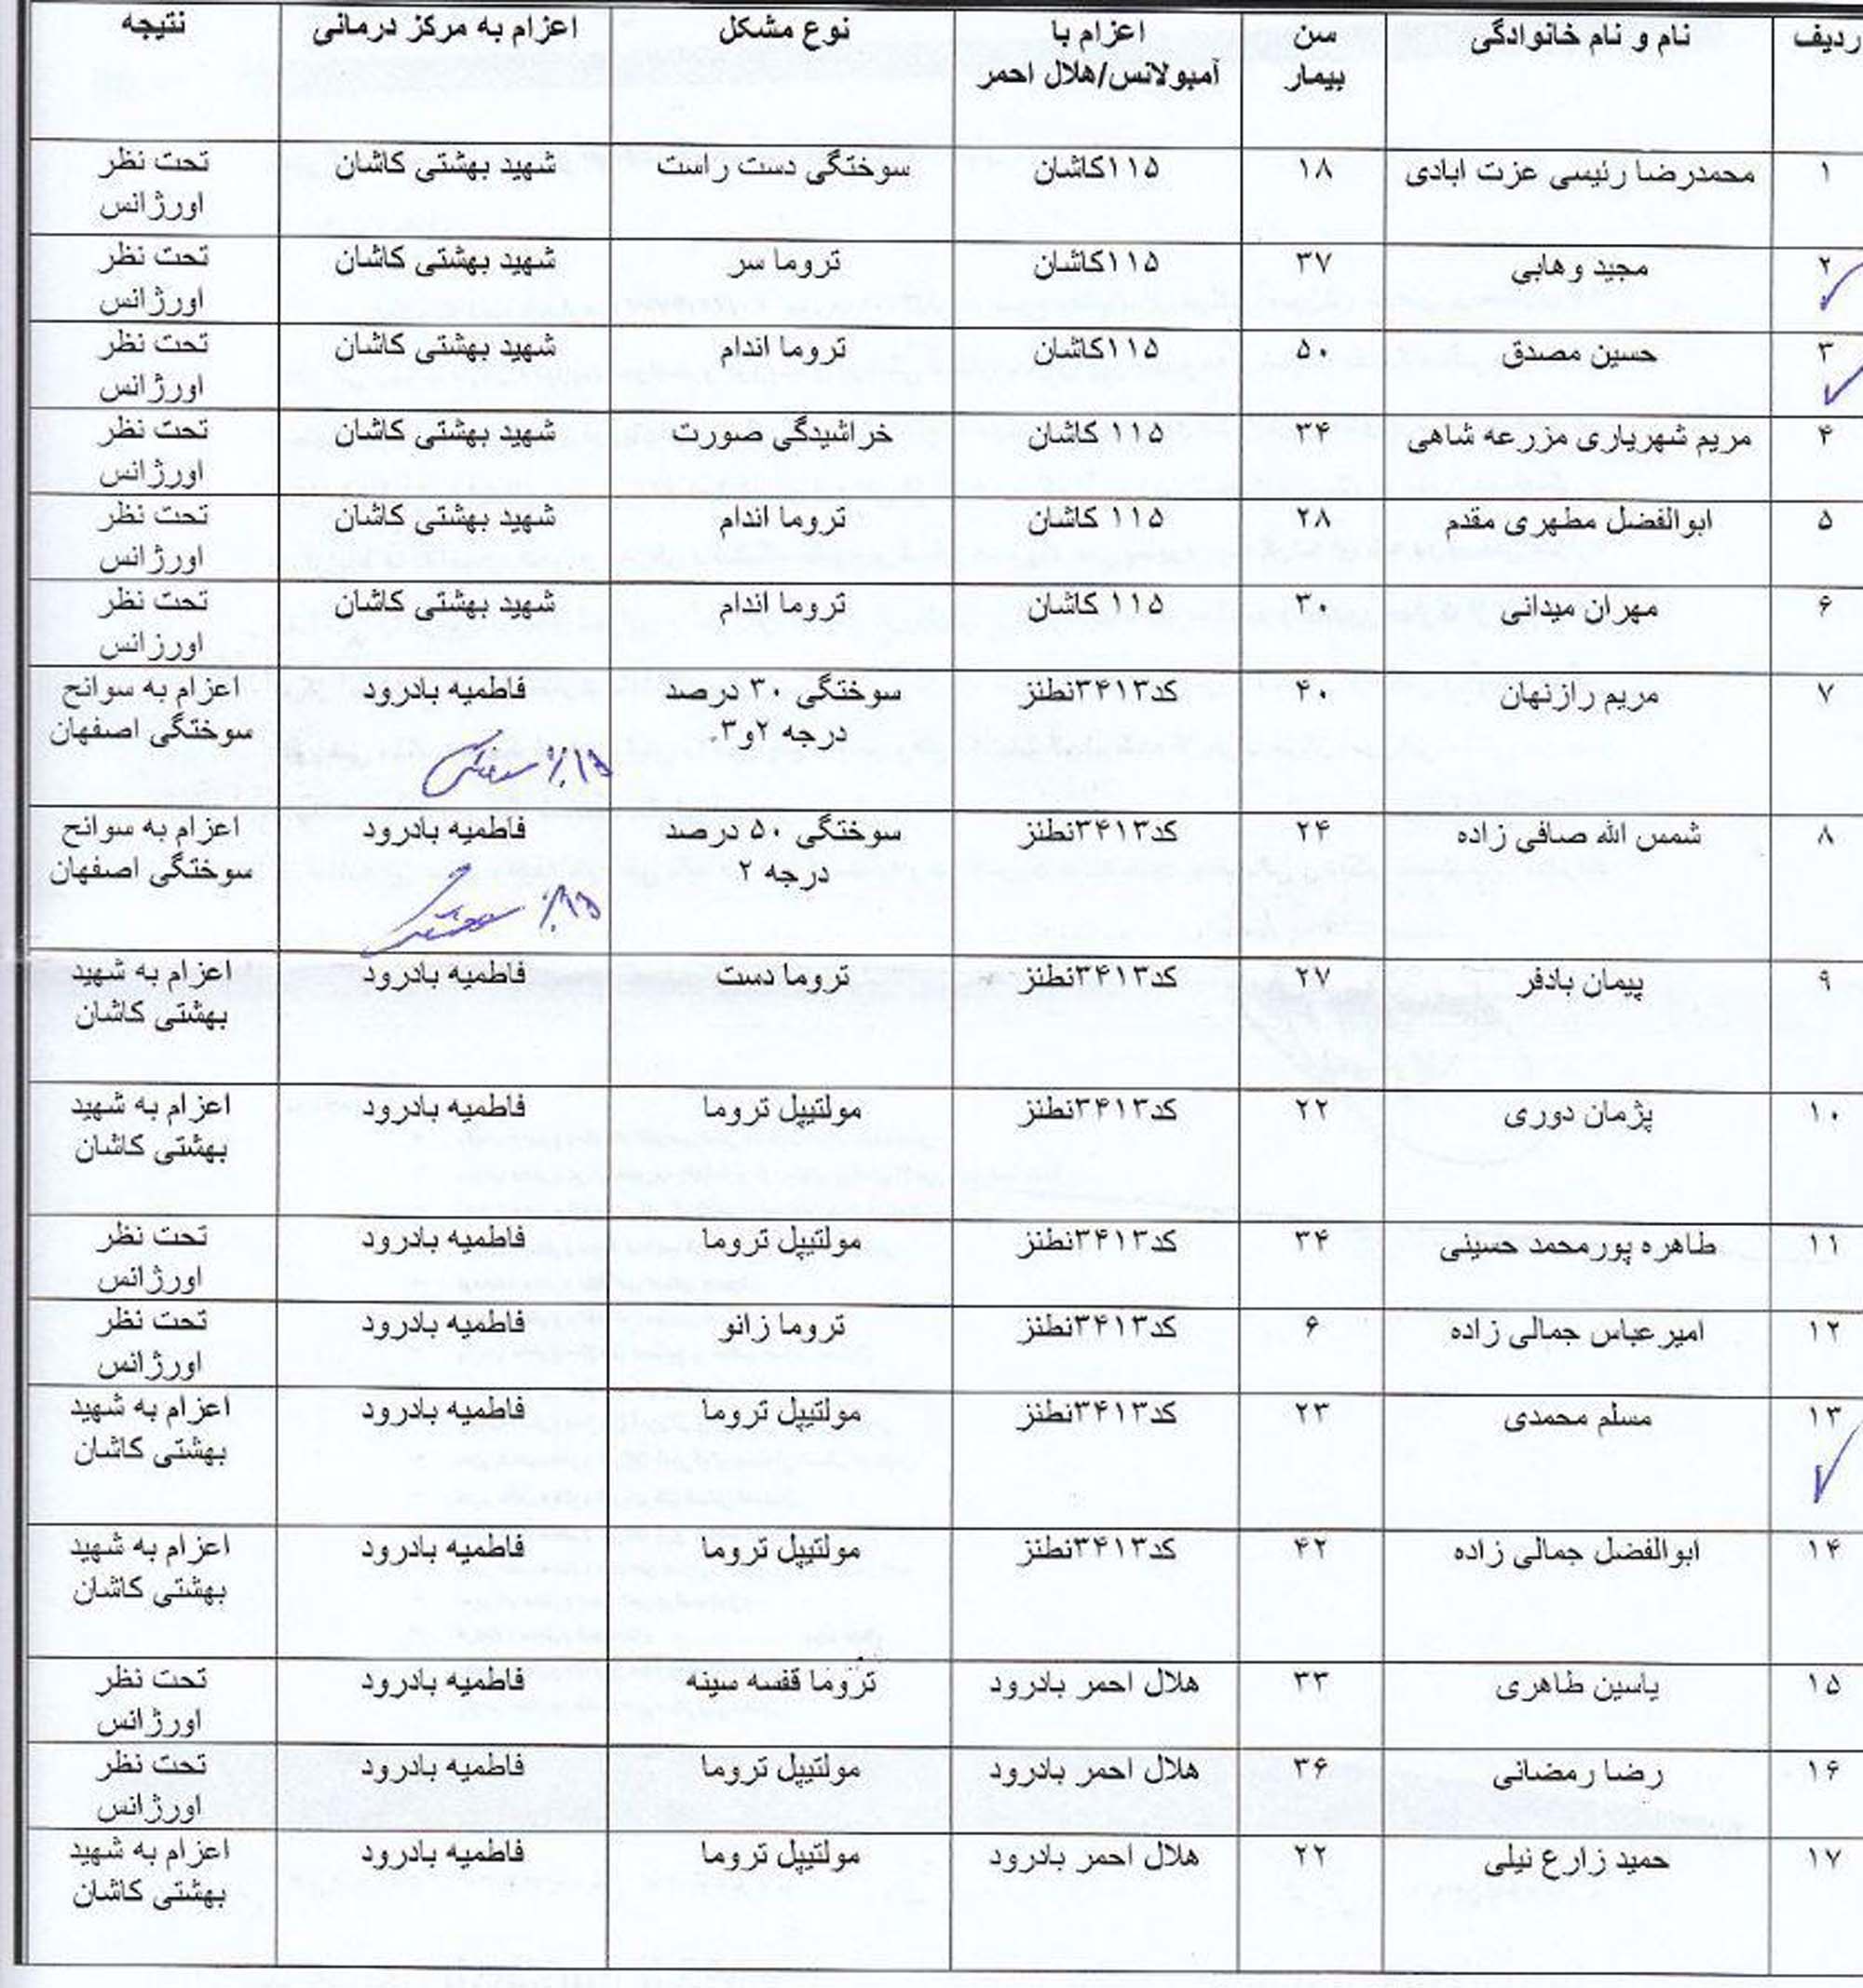 ردیف نام و نام خانوادگی سن بیمار اعزام با آمبولانس/هلال احمر نوع مشکل اعزام به مرکز درمانی نتیجه
۱ محمدرضا رئیسی عزت ابادی ۱۸ ۱۱۵کاشان سوختگی دست راست شهید بهشتی کاشان تحت نظر اورژانس
۲ مجید وهابی ۳۷ ۱۱۵کاشان تروما سر شهید بهشتی کاشان تحت نظر اورژانس
۳ حسین مصدق ۵۰ ۱۱۵کاشان تروما اندام شهید بهشتی کاشان تحت نظر اورژانس
۴ مریم شهریاری مزرعه شاهی ۳۴ ۱۱۵ کاشان خراشیدگی صورت شهید بهشتی کاشان تحت نظر اورژانس
۵ ابوالفضل مطهری مقدم ۲۸ ۱۱۵ کاشان تروما اندام شهید بهشتی کاشان تحت نظر اورژانس
۶ مهران میدانی ۳۰ ۱۱۵ کاشان تروما اندام شهید بهشتی کاشان تحت نظر اورزانس
۷ مریم رازنهان ۴۰ کد۳۴۱۳نطنز سوختگی ۳۰ درصد درجه ۲و۳. فاطمیه بادرود اعزام به سوانح سوختگی اصفهان
۸ شمس الله صافی زاده ۲۴ کد۳۴۱۳نطنز سوختگی ۵۰ درصد درجه ۲ فاطمیه بادرود اعزام به سوانح سوختگی اصفهان
۹ پیمان بادفر ۲۷ کد۳۴۱۳نطنز تروما دست فاطمیه بادرود اعزام به شهید بهشتی کاشان
۱۰ پژمان دوری ۲۲ کد۳۴۱۳نطنز مولتیپل تروما فاطمیه بادرود اعزام به شهید بهشتی کاشان
۱۱ طاهره پورمحمد حسینی ۳۴ کد۳۴۱۳نطنز مولتیپل تروما فاطمیه بادرود تحت نظر اورژانس
۱۲ امیرعباس جمالی زاده ۶ کد۳۴۱۳نطنز تروما زانو فاطمیه بادرود تحت نظر اورژانس
۱۳ مسلم محمدی ۲۳ کد۳۴۱۳نطنز مولتیپل تروما فاطمیه بادرود اعزام به شهید بهشتی کاشان
۱۴ ابوالفضل جمالی زاده ۴۲ کد۳۴۱۳نطنز مولتیپل تروما فاطمیه بادرود اعزام به شهید بهشتی کاشان
۱۵ یاسین طاهری ۳۳ هلال احمر بادرود تروما قفسه سینه فاطمیه بادرود تحت نظر اورژانس
۱۶ رضا رمضانی ۳۶ هلال احمر بادرود مولتیپل تروما فاطمیه بادرود تحت نظر اورژانس
۱۷ حمید زارع نیلی ۲۲ هلال احمر بادرود مولتیپل تروما فاطمیه بادرود اعزام به شهید بهشتی کاشان